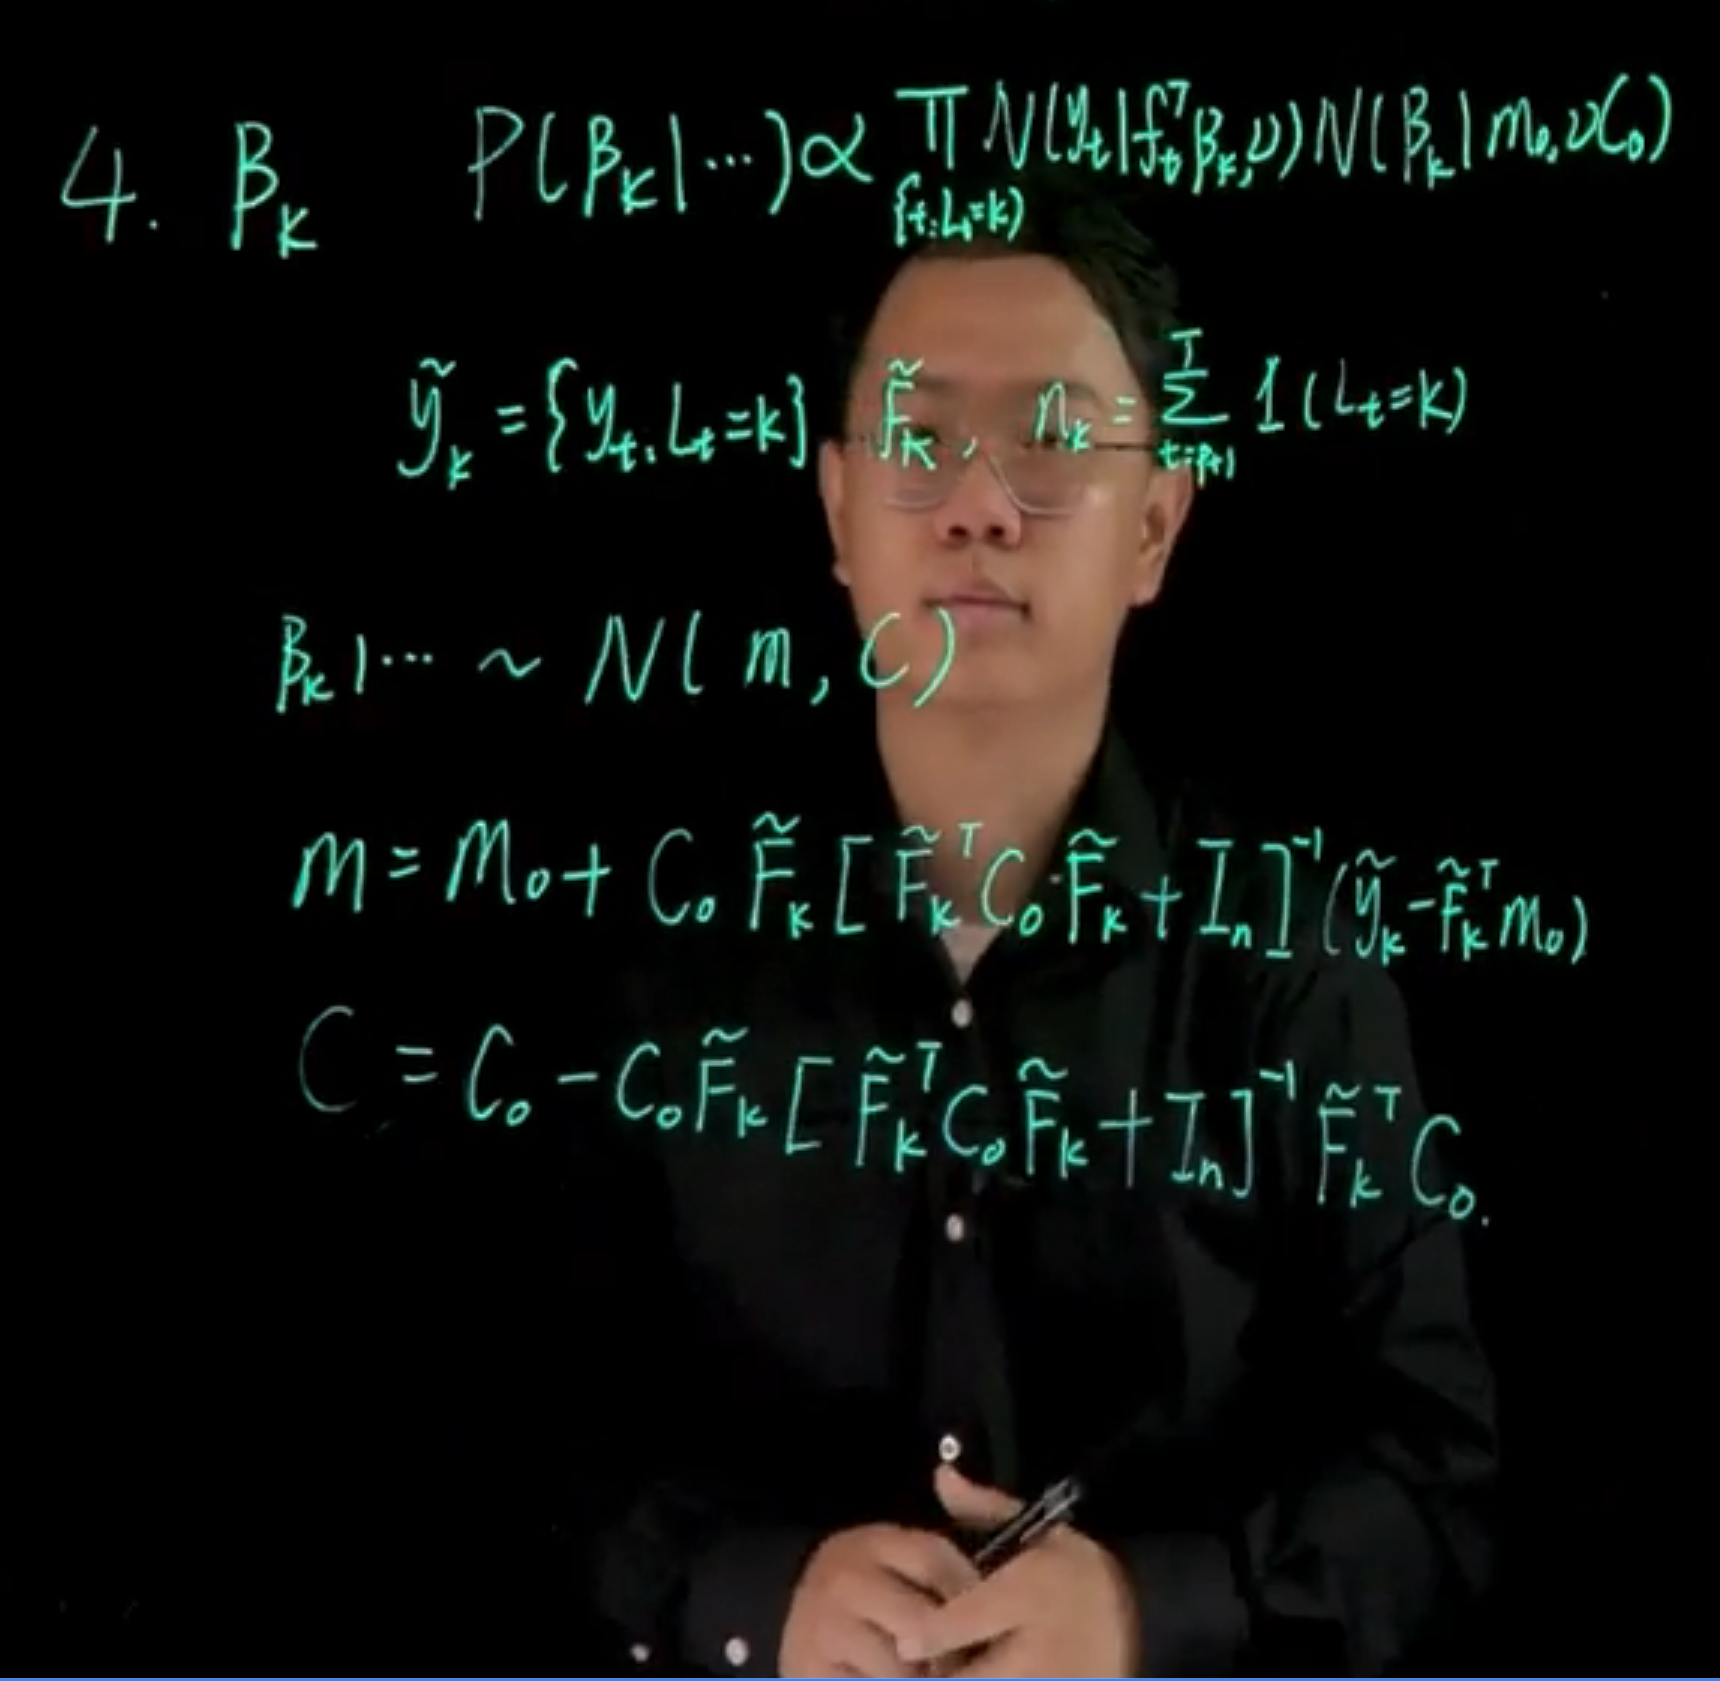 4. β_k P(β_k|⋯) ∝ ∏_{{t:L_t=k)} N(y_t|f_t^T β_k, ν) N(β_k|m_0, νC_0)
ỹ_k = {y_t. L_t=k} F̃_k, n_k = Σ_{t=p+1}^T 1(L_t=k)
β_k|⋯ ~ N(m, C)
m = m_0 + C_0 F̃_k [F̃_k^T C_0 F̃_k + I_n]^{-1} (ỹ_k - F̃_k^T m_0)
C = C_0 - C_0 F̃_k [F̃_k^T C_0 F̃_k + I_n]^{-1} F̃_k^T C_0.